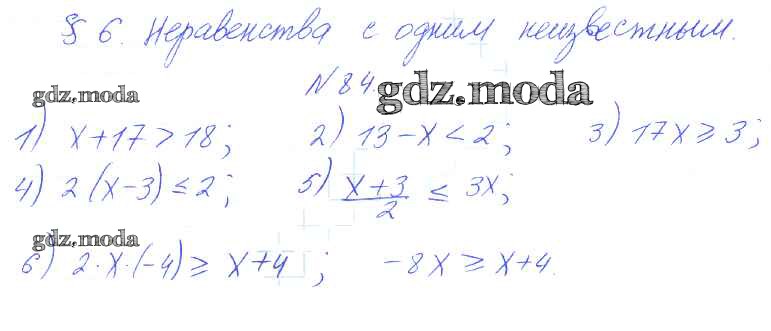 § 6. Неравенства с одним неизвестным.
N 84.
gdz.moda gdz.moda
1) x+17>18; 2) 13-x<2; 3) 17x≥3;
4) 2(x-3)≤2; 5) (x+3)/2 ≤ 3x;
gdz.moda
6) 2·x·(-4)≥x+4; -8x≥x+4.